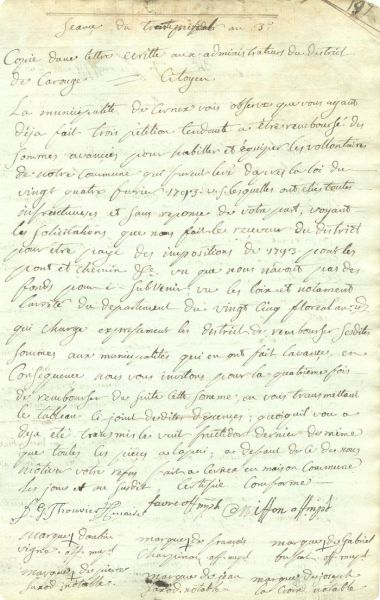 197
Seance du trente prairial an 3e
Copie dune lettre ecritte aux administrateurs du district
de Carouge Citoyen
La municipalité de Cernex vous observe que vous ayant
deja fait trois petition tendente a être remboursé des
sommes avancées pour habiller et equiper les volontaires
de notre Commune qui furent levé daprès la loi du
vingt quatre fevrier 1793 v.s. lesquelles ont été toutes
infructueuses et sans reponse de votre part, voyant
les solicitations que nous fait le receveur du district
pour être payé des impositions de 1793 pour les
pont et chemin &c. vu que nous navoit pas des
fonds pour i subvenir vu les loix et notament
larreté du departement du vingt cinq floreal an
qui charge expressement les district de rembourser lesdites
sommes aux municipalités qui en ont fait lavance, en
Consequence nous vous invitons pour la quatrieme fois
de rembourser de suite cette somme, en vous transmettant
le tableau ci joint desdites depenses, quoiquil vous a
deja été transmis le vuit fructidor dernier de même
que toutes les pieces a lapui, a defaut de ce de nous
motiver votre refus fait a Cernex en maison Commune
les jours et an susdit Certifié Conforme
J G Thouvier favre off mpl Biffon off mpl
marque marque de francois marque de Gabriel
vigne off. mupl Chapinon off mpl off. mpl
marque de pierre marque de jean marque de joseph
notable notable la Croix notable